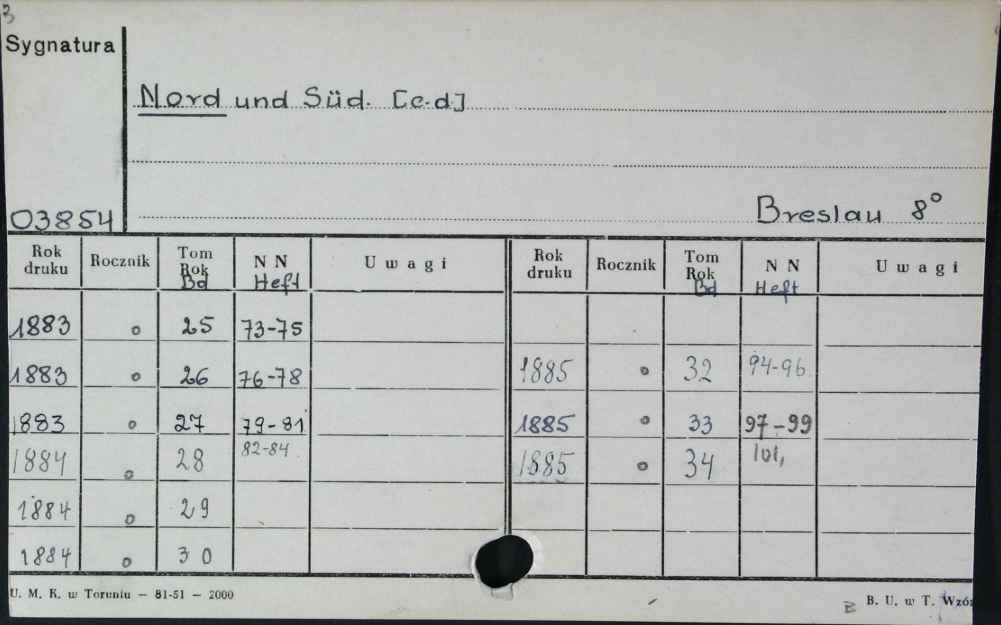 3
Sygnatura
Nord und Süd. [c.d]
03854
Breslau 8°
Rok druku Rocznik Tom Rok Bd N N Heft Uwagi
1883 o 25 73-75
1883 o 26 76-78
1883 o 27 79-81
1884 o 28 82-84
1884 o 29
1884 o 30
Rok druku Rocznik Tom Rok Bd N N Heft Uwagi
1885 o 32 94-96
1885 o 33 97-99
1885 o 34 101,
U. M. K. w Toruniu — 81-51 — 2000
B. U. w T. Wzór